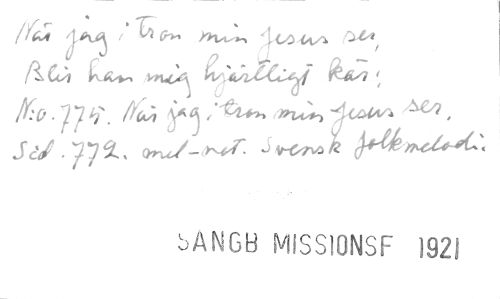 När jag i tron min Jesus ser,
Blir han mig hjärtligt kär;
N:o. 775. När jag i tron min Jesus ser.
Sid. 772. mel-not. Svensk folkmelodi.
SANGB MISSIONSF 1921